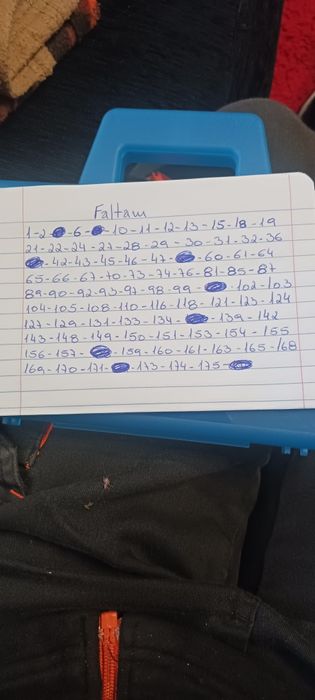 Faltam
1-2-6-10-11-12-13-15-18-19
21-22-24-27-28-29-30-31-32-36
-42-43-45-46-47-60-61-64
65-66-67-70-73-74-76-81-85-87
89-90-92-93-97-98-99-102-103
104-105-108-110-116-118-121-123-124
127-129-131-133-134-139-142
143-148-149-150-151-153-154-155
156-157-159-160-161-163-165-168
169-170-171-173-174-175-